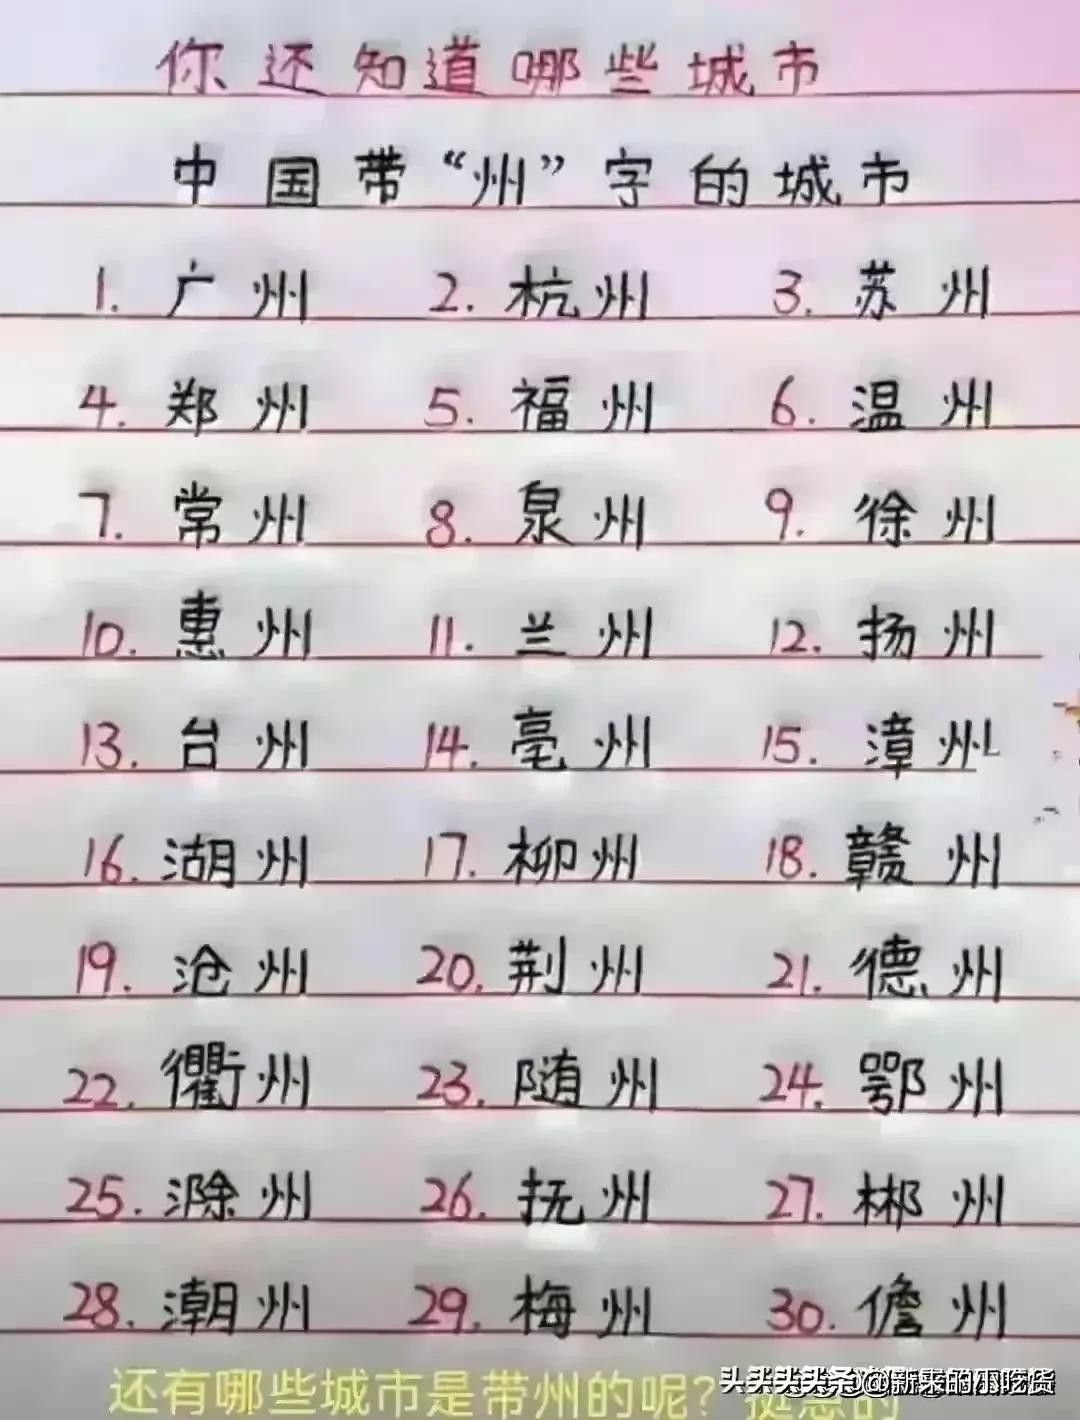 你还知道哪些城市
中国带“州”字的城市
1. 广州 2. 杭州 3. 苏州
4. 郑州 5. 福州 6. 温州
7. 常州 8. 泉州 9. 徐州
10. 惠州 11. 兰州 12. 扬州
13. 台州 14. 亳州 15. 漳州
16. 湖州 17. 柳州 18. 赣州
19. 沧州 20. 荆州 21. 德州
22. 衢州 23. 随州 24. 鄂州
25. 滁州 26. 抚州 27. 郴州
28. 潮州 29. 梅州 30. 儋州
还有哪些城市是带州的呢?